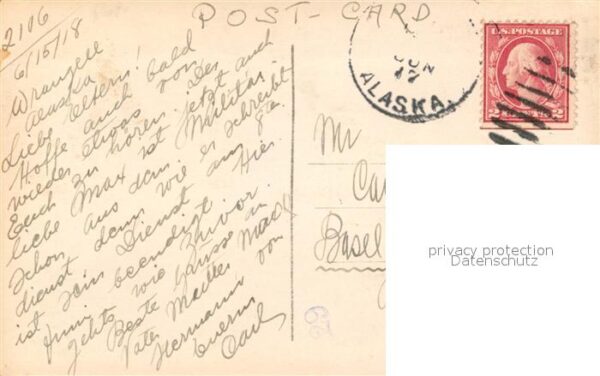 POST-CARD
2106
6/15/18
Wrangell
Alaska
Liebe Eltern! bald
Hoffe auch von
wieder etwas Der
Euch zu hören. jetzt auch
liebe Max ist Militär
schon aus dem er schreibt
dienst denn wie am
ist sein Dienst
Juni beendigt. Hier
gehts wie zuvor
Beste Grüsse an
Vater
Hermann von
Euerm
Carl
JUN
17
ALASKA
U.S. POSTAGE
2 CENTS 2
Mr
Ca
Basel
29
privacy protection
Datenschutz